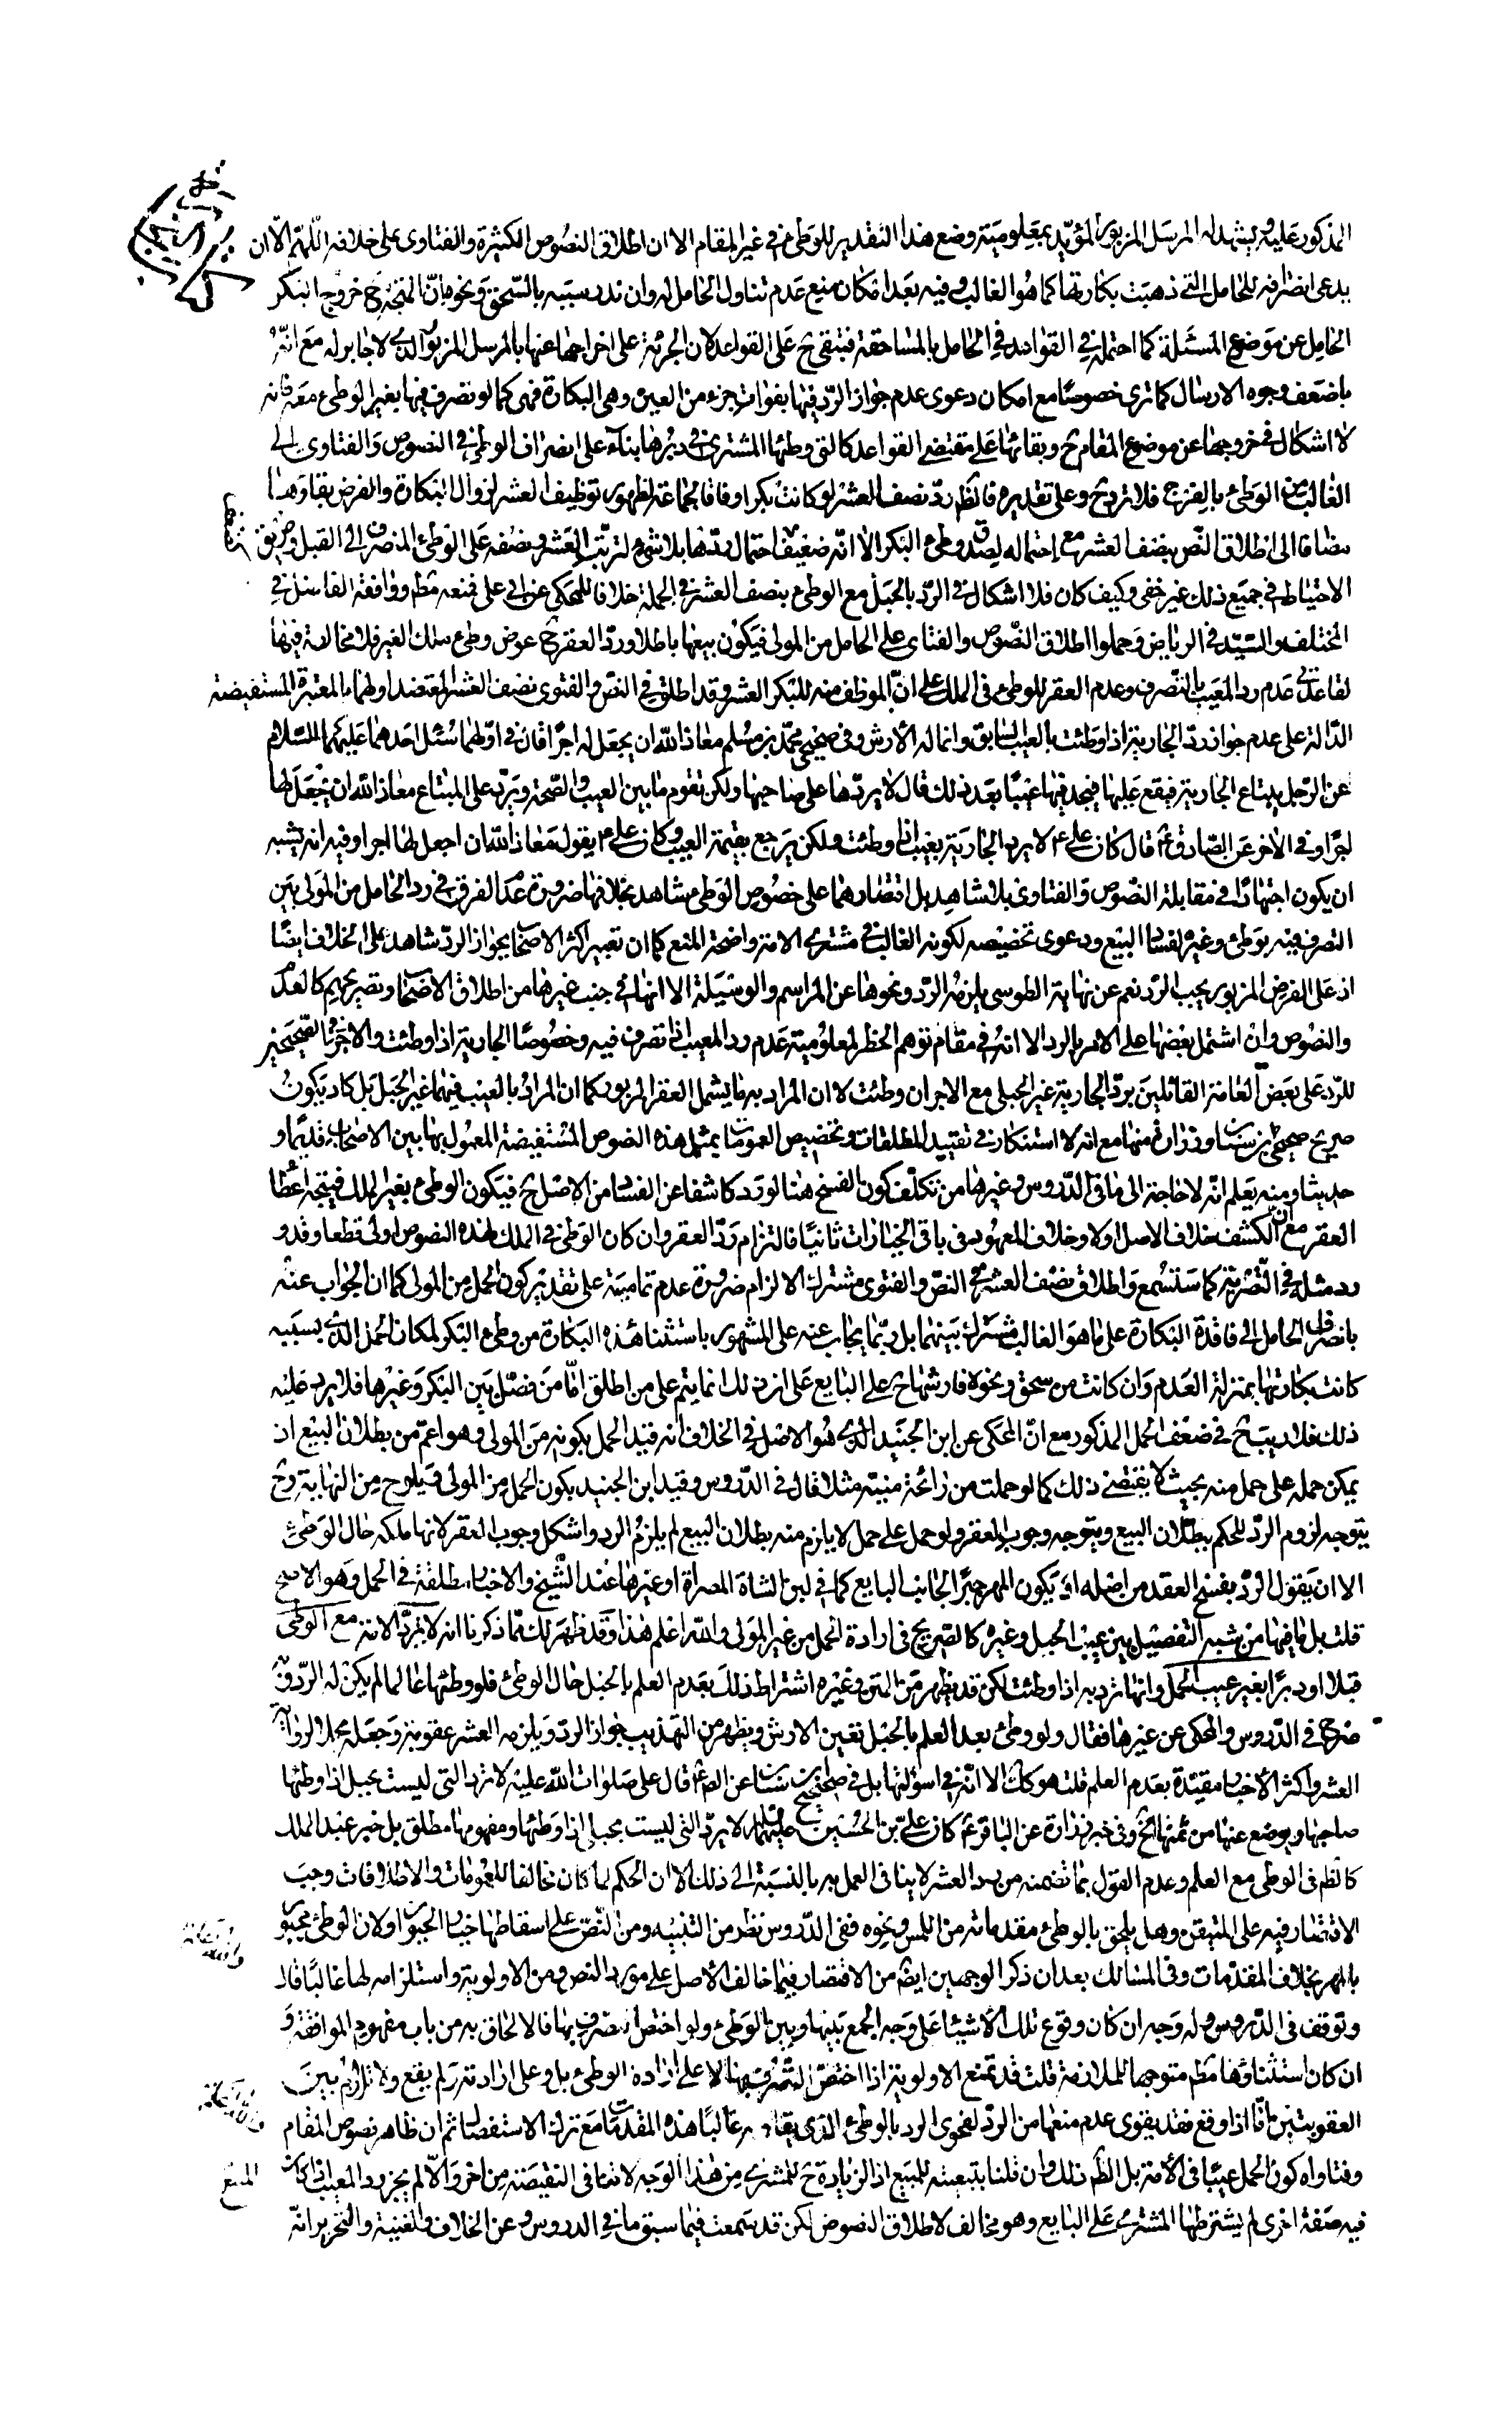 المذكور عليه ويشهد له المرسل المزبور المؤيد بمعلومية وضع هذا التقدير للوطئ في غير المقام الا ان اطلاق النصوص الكثيرة والفتاوى على خلافه اللهم الا ان
يدعى انصرافه للحامل التي ذهبت بكارتها كما هو الغالب وفيه بعد امكان منع عدم تناول الحامل له وان ندر سببه بالسحق ونحوه ان المتجه ح خروج البكر
الحامل عن موضع المسئلة كما احتمله في القواعد في الحامل بالمساحقة فتبقى ح على القواعد لان الجرئة على اخراجها عنها بالمرسل المزبور الذي لا جابر له مع انه
باضعف وجوه الارسال كما ترى خصوصا مع امكان دعوى عدم جواز الرد فيها بفوات جزء من العين وهي البكارة فهى كما لو تصرف فيها بغير الوطىء معه فانه
لا اشكال في خروجها عن موضوع المقام ح وبقائها على مقتضى القواعد كالتى وطئها المشترى في دبرها بناء على انصراف الوطئ في النصوص والفتاوى الى
الغالب من الوطئ بالفرج فلا ترد ح وعلى تقديره فالظ رد نصف العشر لو كانت بكرا وفاقا لجماعة لظهور توظيف العشر لزوال البكارة والفرض بقاؤها
مضافا الى اطلاق النص بنصف العشر مع احتماله لصدق وطىء البكر الا انه ضعيف كاحتمال ردها بلا شىء لترتب العشر ونصفه على الوطئ المنصرف الى القبل وطريق
الاحتياط في جميع ذلك غير خفى وكيف كان فلا اشكال في الرد بالحبل مع الوطىء بنصف العشر في الجملة خلافا للمحكي عن ابى على فمنعه مط ووافقه الفاضل في
المختلف والسيد في الرياض وحملوا اطلاق النصوص والفتاوى على الحامل من المولى فيكون بيعها باطلا ورد العقر ح عوض وطىء ملك الغير فلا مخالفة فيها
لقاعدتى عدم رد المعيب بالتصرف وعدم العقر للوطئ في الملك على ان الموظف منه للبكر العشر وقد اطلق في النص والفتوى نصف العشر المعتضد اولهما بالمعتبرة المستفيضة
الدالة على عدم جواز رد الجارية اذا وطئت بالعيب السابق وانما له الأرش وفي صحيحى محمد بن مسلم معاذ الله ان يجعل لها اجرا قال في اولهما سئل احدهما عليهما السلام
عن الرجل يبتاع الجارية فيقع عليها فيجد فيها عيبا بعد ذلك قال لا يردها على صاحبها ولكن تقوم ما بين العيب والصحة ويرد على المبتاع معاذ الله ان يجعل لها
اجرا وفي الاخر عن الصادق ع قال كان على ع لا يرد الجارية بعيب اذا وطئت ولكن يرجع بقيمة العيب وكان على ع يقول معاذ الله ان اجعل لها اجرا وفيه انه يشبه
ان يكون اجتهادا في مقابلة النصوص والفتاوى بلا شاهد بل اقتصارهما على خصوص الوطىء شاهد بخلافها ضرورة عدم الفرق في رد الحامل من المولى بين
التصرف فيه بوطئ وغيره لفساد البيع ودعوى تخصيصه لكونه الغالب في مشترى الامة واضحة المنع كما ان تعبير اكثر الاصحاب بجواز الرد شاهد على الخلاف ايضا
اذ على الفرض المزبور يجب الرد نعم عن نهاية الطوسى يلزمه الرد ونحوها عن المراسم والوسيلة الا انها في جنب غيرها من اطلاق الاصحاب وتصريحهم كالعدم
والنصوص وان اشتمل بعضها على الامر بالرد الا انه في مقام توهم الحظر لمعلومية عدم رد المعيب اذا تصرف فيه وخصوصا الجارية اذا وطئت والاخر في الصحيحين
للرد على بعض العامة القائلين برد الجارية غير الحبلى مع الاجر ان وطئت لا ان المراد به ما يشمل العقر المزبور كما ان المراد بالعيب فيهما غير الحبل بل كاد يكون
صريح صحيحى ابن سنان وزرارة منها مع انه لا استنكار في تقييد المطلقات وتخصيص العمومات بمثل هذه النصوص المستفيضة المعمول بها بين الاصحاب قديما و
حديثا ومنه يعلم انه لا حاجة الى ما في الدروس وغيرها من تكلف كون الفسخ هنا لو رد كاشفا عن الفساد من الاصل ح فيكون الوطىء بغير الملك فيتجه اعطاء
العقر مع ان الكشف خلاف الاصل اولا وخلاف المعهود في باقى الخيارات ثانيا فالتزام رد العقر وان كان الوطئ في الملك لهذه النصوص اولى قطعا وقد و
رد مثله في التصرية كما ستسمع واطلاق نصف العشر في النص والفتوى مشترك الالزام ضرورة عدم تماميته على تقدير كون الحمل من المولى كما ان الجواب عنه
بانصراف الحامل الى فاقدة البكارة على ما هو الغالب مشترك بينهما بل ربما يجاب عنه على المشهور باستثناء هذه البكارة من وطىء البكر لمكان الحمل الذي بسببه
كانت بكارتها بمنزلة العدم وان كانت من سحق ونحوه فارشها ح على البايع على ان ذلك انما يتم على من اطلق اما من فصل بين البكر وغيرها فلا يرد عليه
ذلك فلا ريب ح في ضعف الحمل المذكور مع ان المحكى عن ابن الجنيد الذي هو الاصل في الخلاف انه قيد الحمل بكونه من المولى وهو اعم من بطلان البيع اذ
يمكن حمله على حمل منه بحيث لا يقتضى ذلك كما لو حملت من رائحة منيه مثلا قال في الدروس وقيد ابن الجنيد بكون الحمل من المولى ويلوح من النهاية وح
يتوجه لزوم الرد للحكم ببطلان البيع ويتوجه وجوب العقر ولو حمل على حمل لا يلزم منه بطلان البيع لم يلزم الرد واشكل وجوب العقر لانها ملكه حال الوطئ
الا ان يقول الرد يفسخ العقد من اصله او يكون المهر جبرا لجانب البايع كما في لبن الشاة المصراة او غيرها عند الشيخ والاخبار مطلقة في الحمل وهو الاصح
قلت بل ما فيها من شبه التفصيل بين عيب الحبل وغيره كالصريح في ارادة الحمل من غير المولى والله اعلم هذا وقد ظهر لك مما ذكرنا انه لا ترد الامة مع الوطئ
قبلا او دبرا بغير عيب الحمل وانها ترد به اذا وطئت لكن قد يظهر من المتن وغيره اشتراط ذلك بعدم العلم بالحبل حال الوطئ فلو وطئها عالما لم يكن له الرد وبه
صرح في الدروس والمحكى عن غيرها فقال ولو وطئ بعد العلم بالحبل تعين الارش ويظهر من التهذيب جواز الرد ويلزمه العشر عقوبة وجعله محملا لرواية
العشر واكثر الأخبار مقيدة بعدم العلم قلت هو كك الا انه في اسؤلتها بل في صحيح ابن سنان عن الص ع قال على صلوات الله عليه لا ترد التى ليست بحبلى اذا وطئها
صاحبها ويوضع عنها من ثمنها الخ وفي خبر زرارة عن الباقر ع كان على بن الحسين عليهما السلام لا يرد التى ليست بحبلى اذا وطئها ومفهومها مطلق بل خبر عبد الملك
كالظ في الوطى مع العلم وعدم القول بما تضمنه من رد العشر لا ينافى العمل به بالنسبة الى ذلك الا ان الحكم لما كان مخالفا للعمومات والاطلاقات وجب
الاقتصار فيه على المتيقن وهل يلحق بالوطئ مقدماته من اللمس ونحوه ففى الدروس نظر من التنبيه ومن النص على اسقاطها خيار الحيوان او لان الوطئ مجبور
بالمهر بخلاف المقدمات وفي المسالك بعد ان ذكر الوجهين ايضا من الاقتصار فيما خالف الأصل على مورد النص ومن الاولوية واستلزامه لها غالبا قال
وتوقف في الدروس وله وجه ان كان وقوع تلك الأشياء على وجه الجمع بينها وبين الوطئ ولو اختص التصرف بها فالالحاق به من باب مفهوم الموافقة و
ان كان استثناؤها مط متوجها للملازمة قلت قد تمنع الاولوية اذا اختص التصرف بها لا على ارادة الوطئ بل وعلى ارادته ولم يقع ولا تلازم بين
العقوبتين اما اذا وقع فقد يقوى عدم منعها من الرد لفحوى الرد بالوطئ الذي يقارنه غالبا هذه المقدمات مع ترك الاستفصال ثم ان ظاهر نصوص المقام
وفتاواه كون الحمل عيبا في الأمة بل الظ ذلك وان قلنا بتبعيته للمبيع اذ الزيادة ح للمشترى من هذا الوجه لا تنافى النقيصة من اخر والا لم يجز رد المعيب اذا كان
فيه صفة اخرى لم يشترطها المشترى على البايع وهو مخالف لاطلاق النصوص لكن قد سمعت فيما سبق ما في الدروس وعن الخلاف والغنية والتحرير انه
المنع